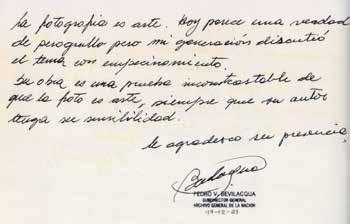 La fotografía es arte. Hoy parece una verdad
de perogrullo pero mi generación discutió
el tema con empecinamiento.
Su obra es una prueba incontrastable de
que la foto es arte, siempre que su autor
tenga su sensibilidad.
Le agradezco su presencia,
Bevilacqua
PEDRO V. BEVILACQUA
SUBDIRECTOR GENERAL
ARCHIVO GENERAL DE LA NACION